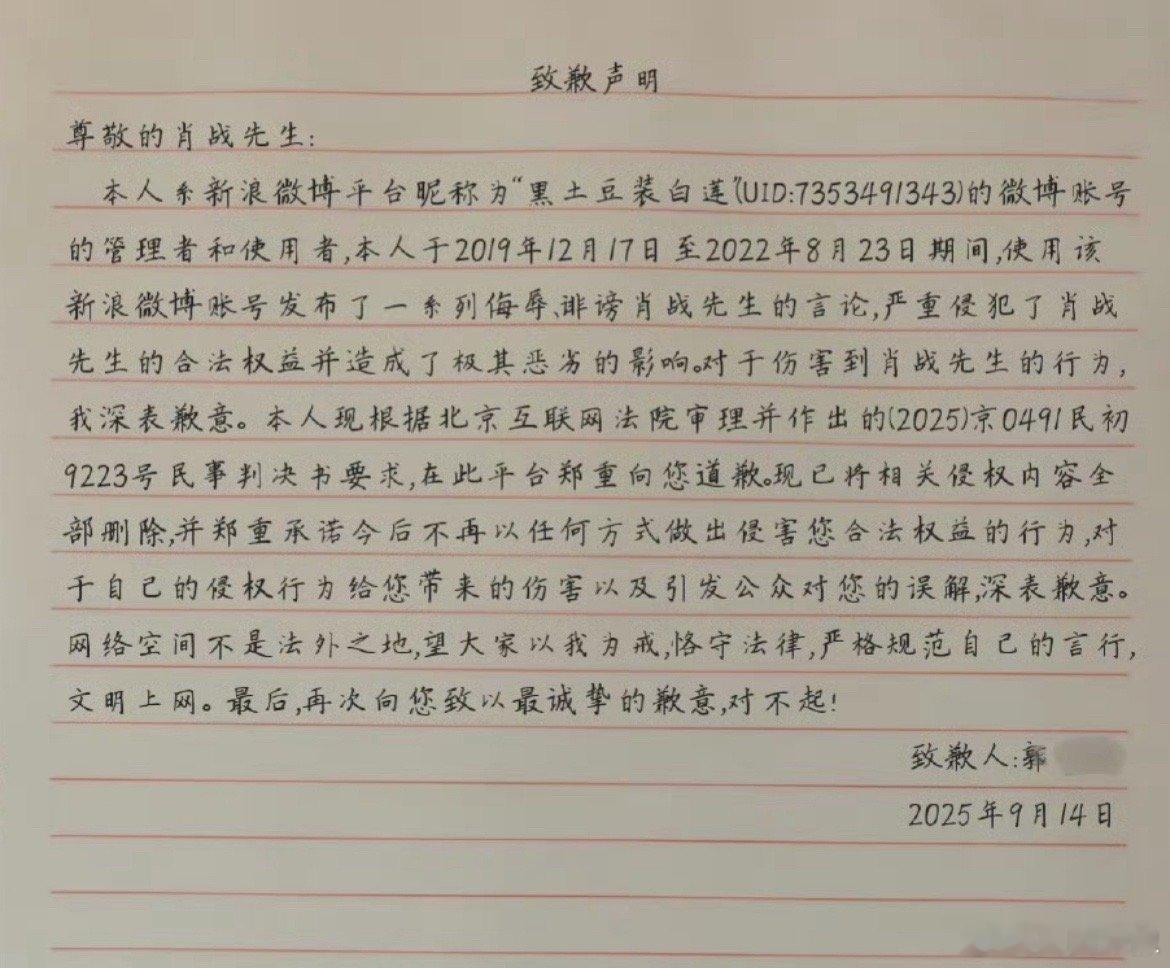 致歉声明
尊敬的肖战先生:
本人系新浪微博平台昵称为“黑土豆装白莲”(UID:7353491343)的微博账号
的管理者和使用者,本人于2019年12月17日至2022年8月23日期间,使用该
新浪微博账号发布了一系列侮辱、诽谤肖战先生的言论,严重侵犯了肖战
先生的合法权益并造成了极其恶劣的影响。对于伤害到肖战先生的行为,
我深表歉意。本人现根据北京互联网法院审理并作出的(2025)京0491民初
9223号民事判决书要求,在此平台郑重向您道歉。现已将相关侵权内容全
部删除,并郑重承诺今后不再以任何方式做出侵害您合法权益的行为,对
于自己的侵权行为给您带来的伤害以及引发公众对您的误解,深表歉意。
网络空间不是法外之地,望大家以我为戒,恪守法律,严格规范自己的言行,
文明上网。最后,再次向您致以最诚挚的歉意,对不起!
致歉人:郭
2025年9月14日